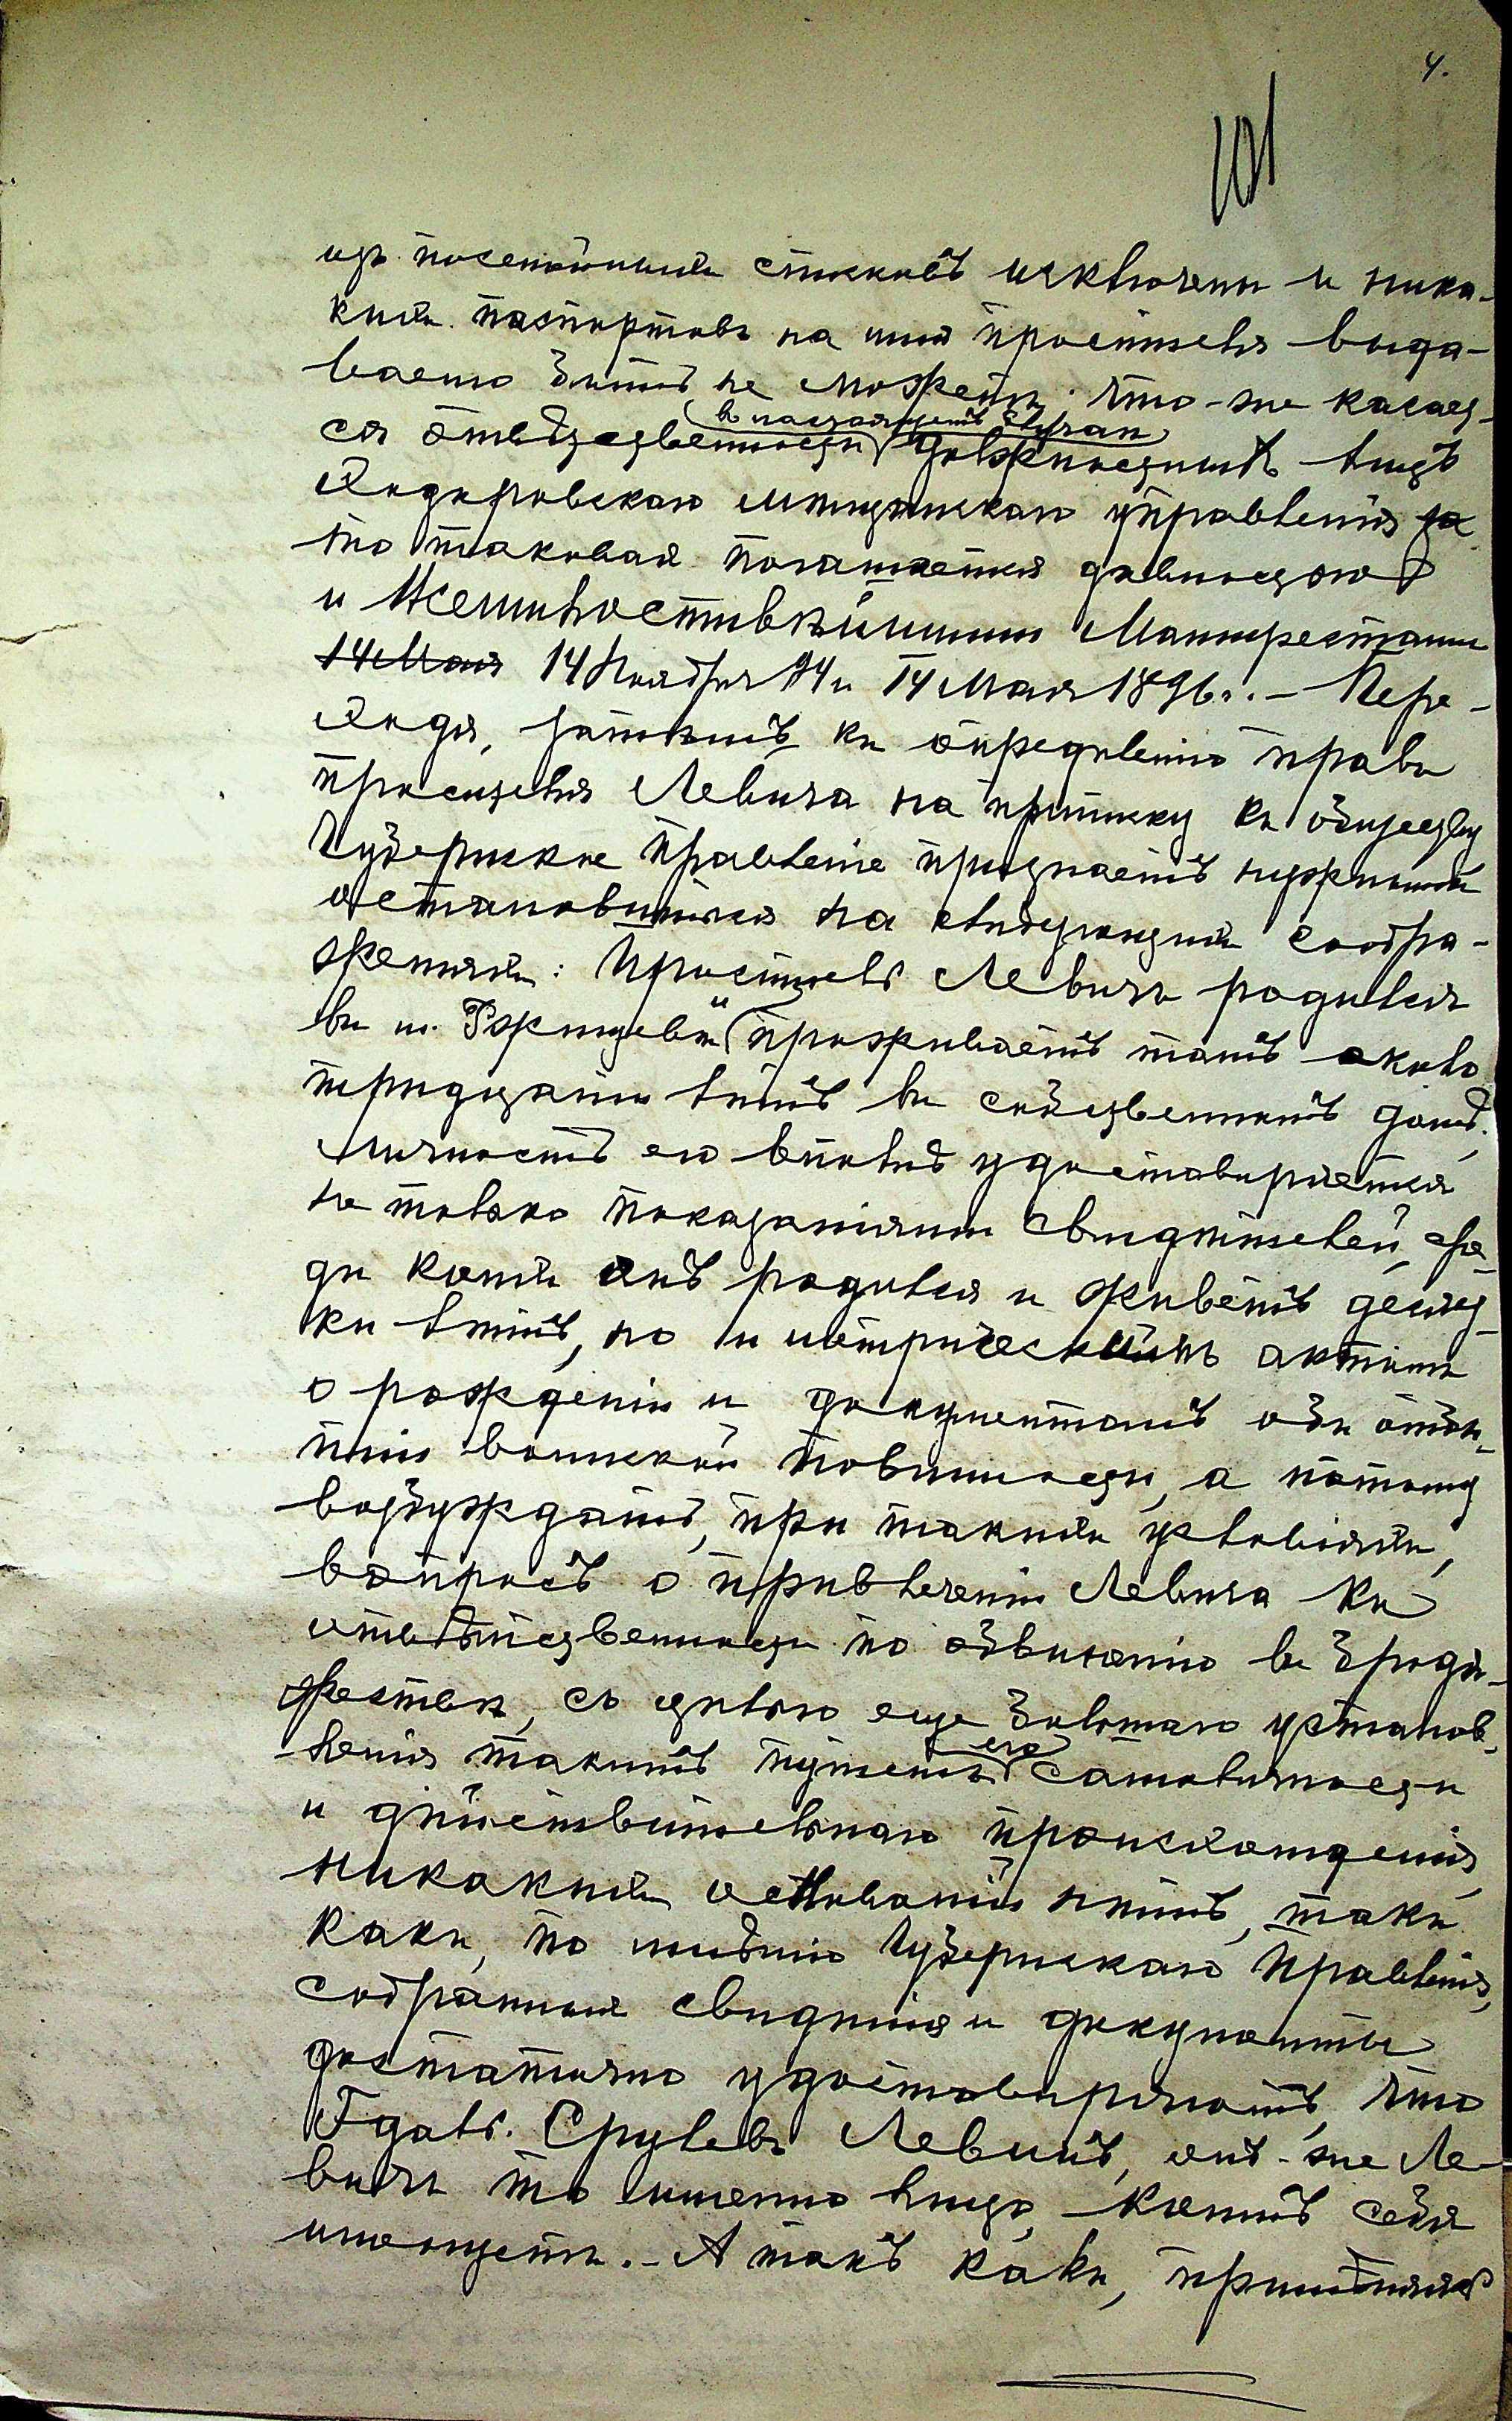 4.
101
изъ посемейныхъ списковъ исключены и ника-
кихъ паспортовъ на имя просителя выда-
ваемо быть не можетъ. Что-же касает-
въ настоящемъ случаѣ
ся отвѣтственности должностныхъ лицъ
Ходоровскаго мѣщанскаго управленія за
то таковая погашается давностью
и Всемилостивѣйшими Манифестами
14 Мая 14 Ноября 94 и 14 Мая 1896 г. – Пере-
ходя, затѣмъ, къ опредѣленію права
просителя Левича на приписку къ обществу
Губернское Правленіе признаетъ нужнымъ
остановиться на слѣдующихъ сообра-
женіяхъ: Проситель Левичъ родился
въ м. Ржищевѣ и проживаетъ тамъ около
тридцати лѣтъ въ собственномъ домѣ.
Личность его вполнѣ удостовѣряется
не только показаніями свидѣтелей, сре-
ди коихъ онъ родился и живетъ десят-
ки лѣтъ, но и метрическимъ актомъ
о рожденіи и документомъ объ отбы-
тіи воинской повинности, а потому
возбуждать, при такихъ условіяхъ,
вопросъ о привлеченіи Левича къ
отвѣтственности по обвиненію въ бродя-
жествѣ, съ цѣлью еще большаго установ-
его
ленія такимъ путемъ самоличности
и дѣйствительнаго происхожденія,
никакихъ основаній нѣтъ, такъ
какъ, по мнѣнію Губернскаго Правленія,
собранныя свѣдѣнія и документы
достаточно удостовѣряютъ, что
Гдаль Срулевъ Левинъ, онъ-же Ле-
вичъ то именно лицо, коимъ себя
именуетъ. – А такъ какъ, примѣняясь